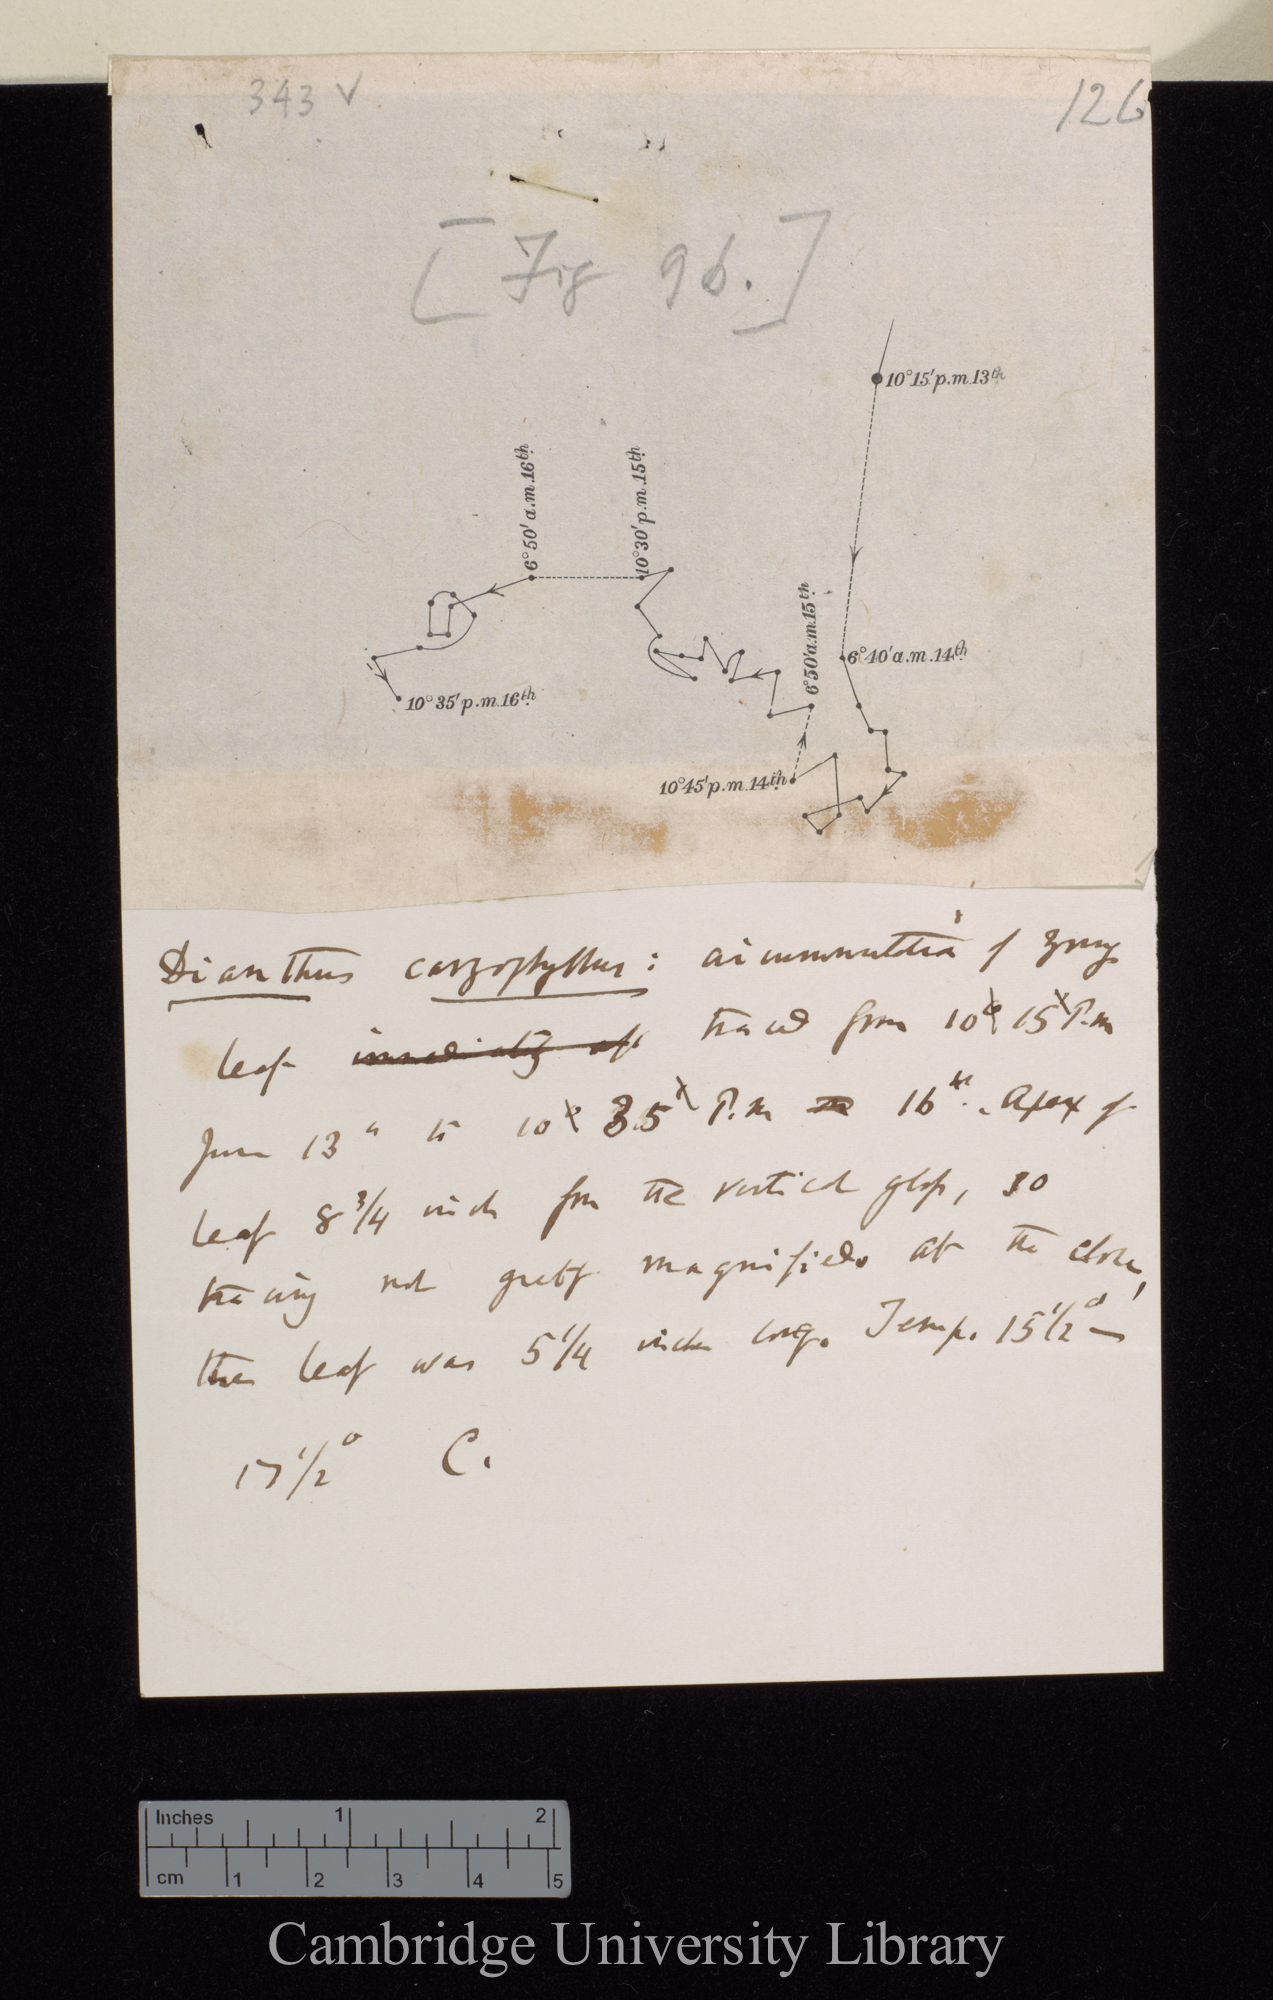 343 v
126
[Fig 96.]
10°15'p.m.13th
6°50'a.m.16th
10°30'p.m.15th
6°50'a.m.15th
6°40'a.m.14th
10°35'p.m.16th
10°45'p.m.14th
Dianthus caryophyllus: circumnutation of young
leaf immediately aft traced from 10° 15' P.m
June 13th to 10° 35' P.m 16th. Apex of
leaf 8 3/4 inch from the vertical glass, so
tracing not greatly magnified. At the close,
the leaf was 5 1/4 inches long. Temp. 15 1/2° —
17 1/2° C.
Inches 1 2
cm 1 2 3 4 5
Cambridge University Library